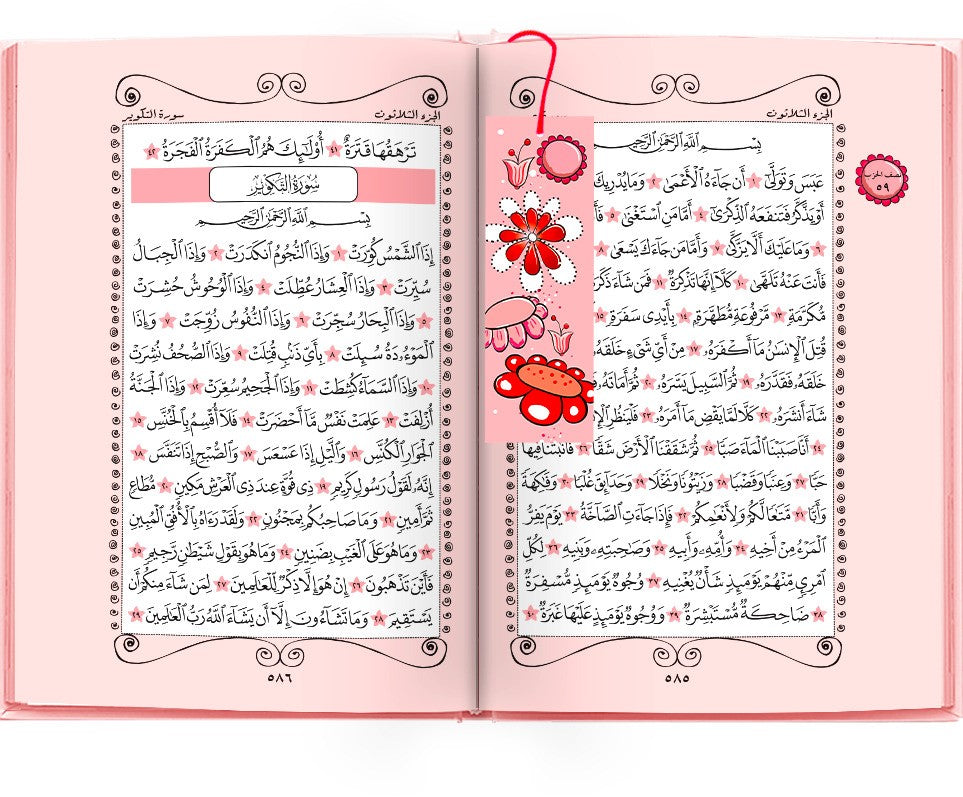 الجزء الثلاثون
بِسْمِ ٱللَّهِ ٱلرَّحْمَٰنِ ٱلرَّحِيمِ
عَبَسَ وَتَوَلَّىٰٓ ١ أَن جَآءَهُ ٱلْأَعْمَىٰ ٢ وَمَا يُدْرِيكَ
أَوْ يَذَّكَّرُ فَتَنفَعَهُ ٱلذِّكْرَىٰٓ ٤ أَمَّا مَنِ ٱسْتَغْنَىٰ ٥
٦ وَمَا عَلَيْكَ أَلَّا يَزَّكَّىٰ ٧ وَأَمَّا مَن جَآءَكَ يَسْعَىٰ ٨
فَأَنتَ عَنْهُ تَلَهَّىٰ ١٠ كَلَّآ إِنَّهَا تَذْكِرَةٌ ١١ فَمَن شَآءَ ذَكَرَهُۥ
مُّكَرَّمَةٍ ١٣ مَّرْفُوعَةٍ مُّطَهَّرَةٍۭ ١٤ بِأَيْدِى سَفَرَةٍ ١٥
قُتِلَ ٱلْإِنسَٰنُ مَآ أَكْفَرَهُۥ ١٧ مِنْ أَىِّ شَىْءٍ خَلَقَهُۥ
خَلَقَهُۥ فَقَدَّرَهُۥ ١٩ ثُمَّ ٱلسَّبِيلَ يَسَّرَهُۥ ٢٠ ثُمَّ أَمَاتَهُۥ
شَآءَ أَنشَرَهُۥ ٢٢ كَلَّا لَمَّا يَقْضِ مَآ أَمَرَهُۥ ٢٣ فَلْيَنظُرِ
٢٤ أَنَّا صَبَبْنَا ٱلْمَآءَ صَبًّا ٢٥ ثُمَّ شَقَقْنَا ٱلْأَرْضَ شَقًّا ٢٦ فَأَنۢبَتْنَا فِيهَا
حَبًّا ٢٧ وَعِنَبًا وَقَضْبًا ٢٨ وَزَيْتُونًا وَنَخْلًا ٢٩ وَحَدَآئِقَ غُلْبًا ٣٠ وَفَٰكِهَةً
وَأَبًّا ٣١ مَّتَٰعًا لَّكُمْ وَلِأَنْعَٰمِكُمْ ٣٢ فَإِذَا جَآءَتِ ٱلصَّآخَّةُ ٣٣ يَوْمَ يَفِرُّ
ٱلْمَرْءُ مِنْ أَخِيهِ ٣٤ وَأُمِّهِۦ وَأَبِيهِ ٣٥ وَصَٰحِبَتِهِۦ وَبَنِيهِ ٣٦ لِكُلِّ
ٱمْرِئٍ مِّنْهُمْ يَوْمَئِذٍ شَأْنٌ يُغْنِيهِ ٣٧ وُجُوهٌ يَوْمَئِذٍ مُّسْفِرَةٌ
٣٨ ضَاحِكَةٌ مُّسْتَبْشِرَةٌ ٣٩ وَوُجُوهٌ يَوْمَئِذٍ عَلَيْهَا غَبَرَةٌ ٤٠
٥٨٥
نصف الحزب
٥٩
الجزء الثلاثون
سورة التكوير
تَرْهَقُهَا قَتَرَةٌ ٤١ أُو۟لَٰٓئِكَ هُمُ ٱلْكَفَرَةُ ٱلْفَجَرَةُ ٤٢
سُورَةُ التَّكْوِيرِ
بِسْمِ ٱللَّهِ ٱلرَّحْمَٰنِ ٱلرَّحِيمِ
إِذَا ٱلشَّمْسُ كُوِّرَتْ ١ وَإِذَا ٱلنُّجُومُ ٱنكَدَرَتْ ٢ وَإِذَا ٱلْجِبَالُ
سُيِّرَتْ ٣ وَإِذَا ٱلْعِشَارُ عُطِّلَتْ ٤ وَإِذَا ٱلْوُحُوشُ حُشِرَتْ
٥ وَإِذَا ٱلْبِحَارُ سُجِّرَتْ ٦ وَإِذَا ٱلنُّفُوسُ زُوِّجَتْ ٧ وَإِذَا
ٱلْمَوْءُۥدَةُ سُئِلَتْ ٨ بِأَىِّ ذَنۢبٍ قُتِلَتْ ٩ وَإِذَا ٱلصُّحُفُ نُشِرَتْ
١٠ وَإِذَا ٱلسَّمَآءُ كُشِطَتْ ١١ وَإِذَا ٱلْجَحِيمُ سُعِّرَتْ ١٢ وَإِذَا ٱلْجَنَّةُ
أُزْلِفَتْ ١٣ عَلِمَتْ نَفْسٌ مَّآ أَحْضَرَتْ ١٤ فَلَآ أُقْسِمُ بِٱلْخُنَّسِ ١٥
ٱلْجَوَارِ ٱلْكُنَّسِ ١٦ وَٱلَّيْلِ إِذَا عَسْعَسَ ١٧ وَٱلصُّبْحِ إِذَا تَنَفَّسَ ١٨
إِنَّهُۥ لَقَوْلُ رَسُولٍ كَرِيمٍ ١٩ ذِى قُوَّةٍ عِندَ ذِى ٱلْعَرْشِ مَكِينٍ ٢٠ مُّطَاعٍ
ثَمَّ أَمِينٍ ٢١ وَمَا صَاحِبُكُم بِمَجْنُونٍ ٢٢ وَلَقَدْ رَءَاهُ بِٱلْأُفُقِ ٱلْمُبِينِ
٢٣ وَمَا هُوَ عَلَى ٱلْغَيْبِ بِضَنِينٍ ٢٤ وَمَا هُوَ بِقَوْلِ شَيْطَٰنٍ رَّجِيمٍ ٢٥
فَأَيْنَ تَذْهَبُونَ ٢٦ إِنْ هُوَ إِلَّا ذِكْرٌ لِّلْعَٰلَمِينَ ٢٧ لِمَن شَآءَ مِنكُمْ أَن
يَسْتَقِيمَ ٢٨ وَمَا تَشَآءُونَ إِلَّآ أَن يَشَآءَ ٱللَّهُ رَبُّ ٱلْعَٰلَمِينَ ٢٩
٥٨٦